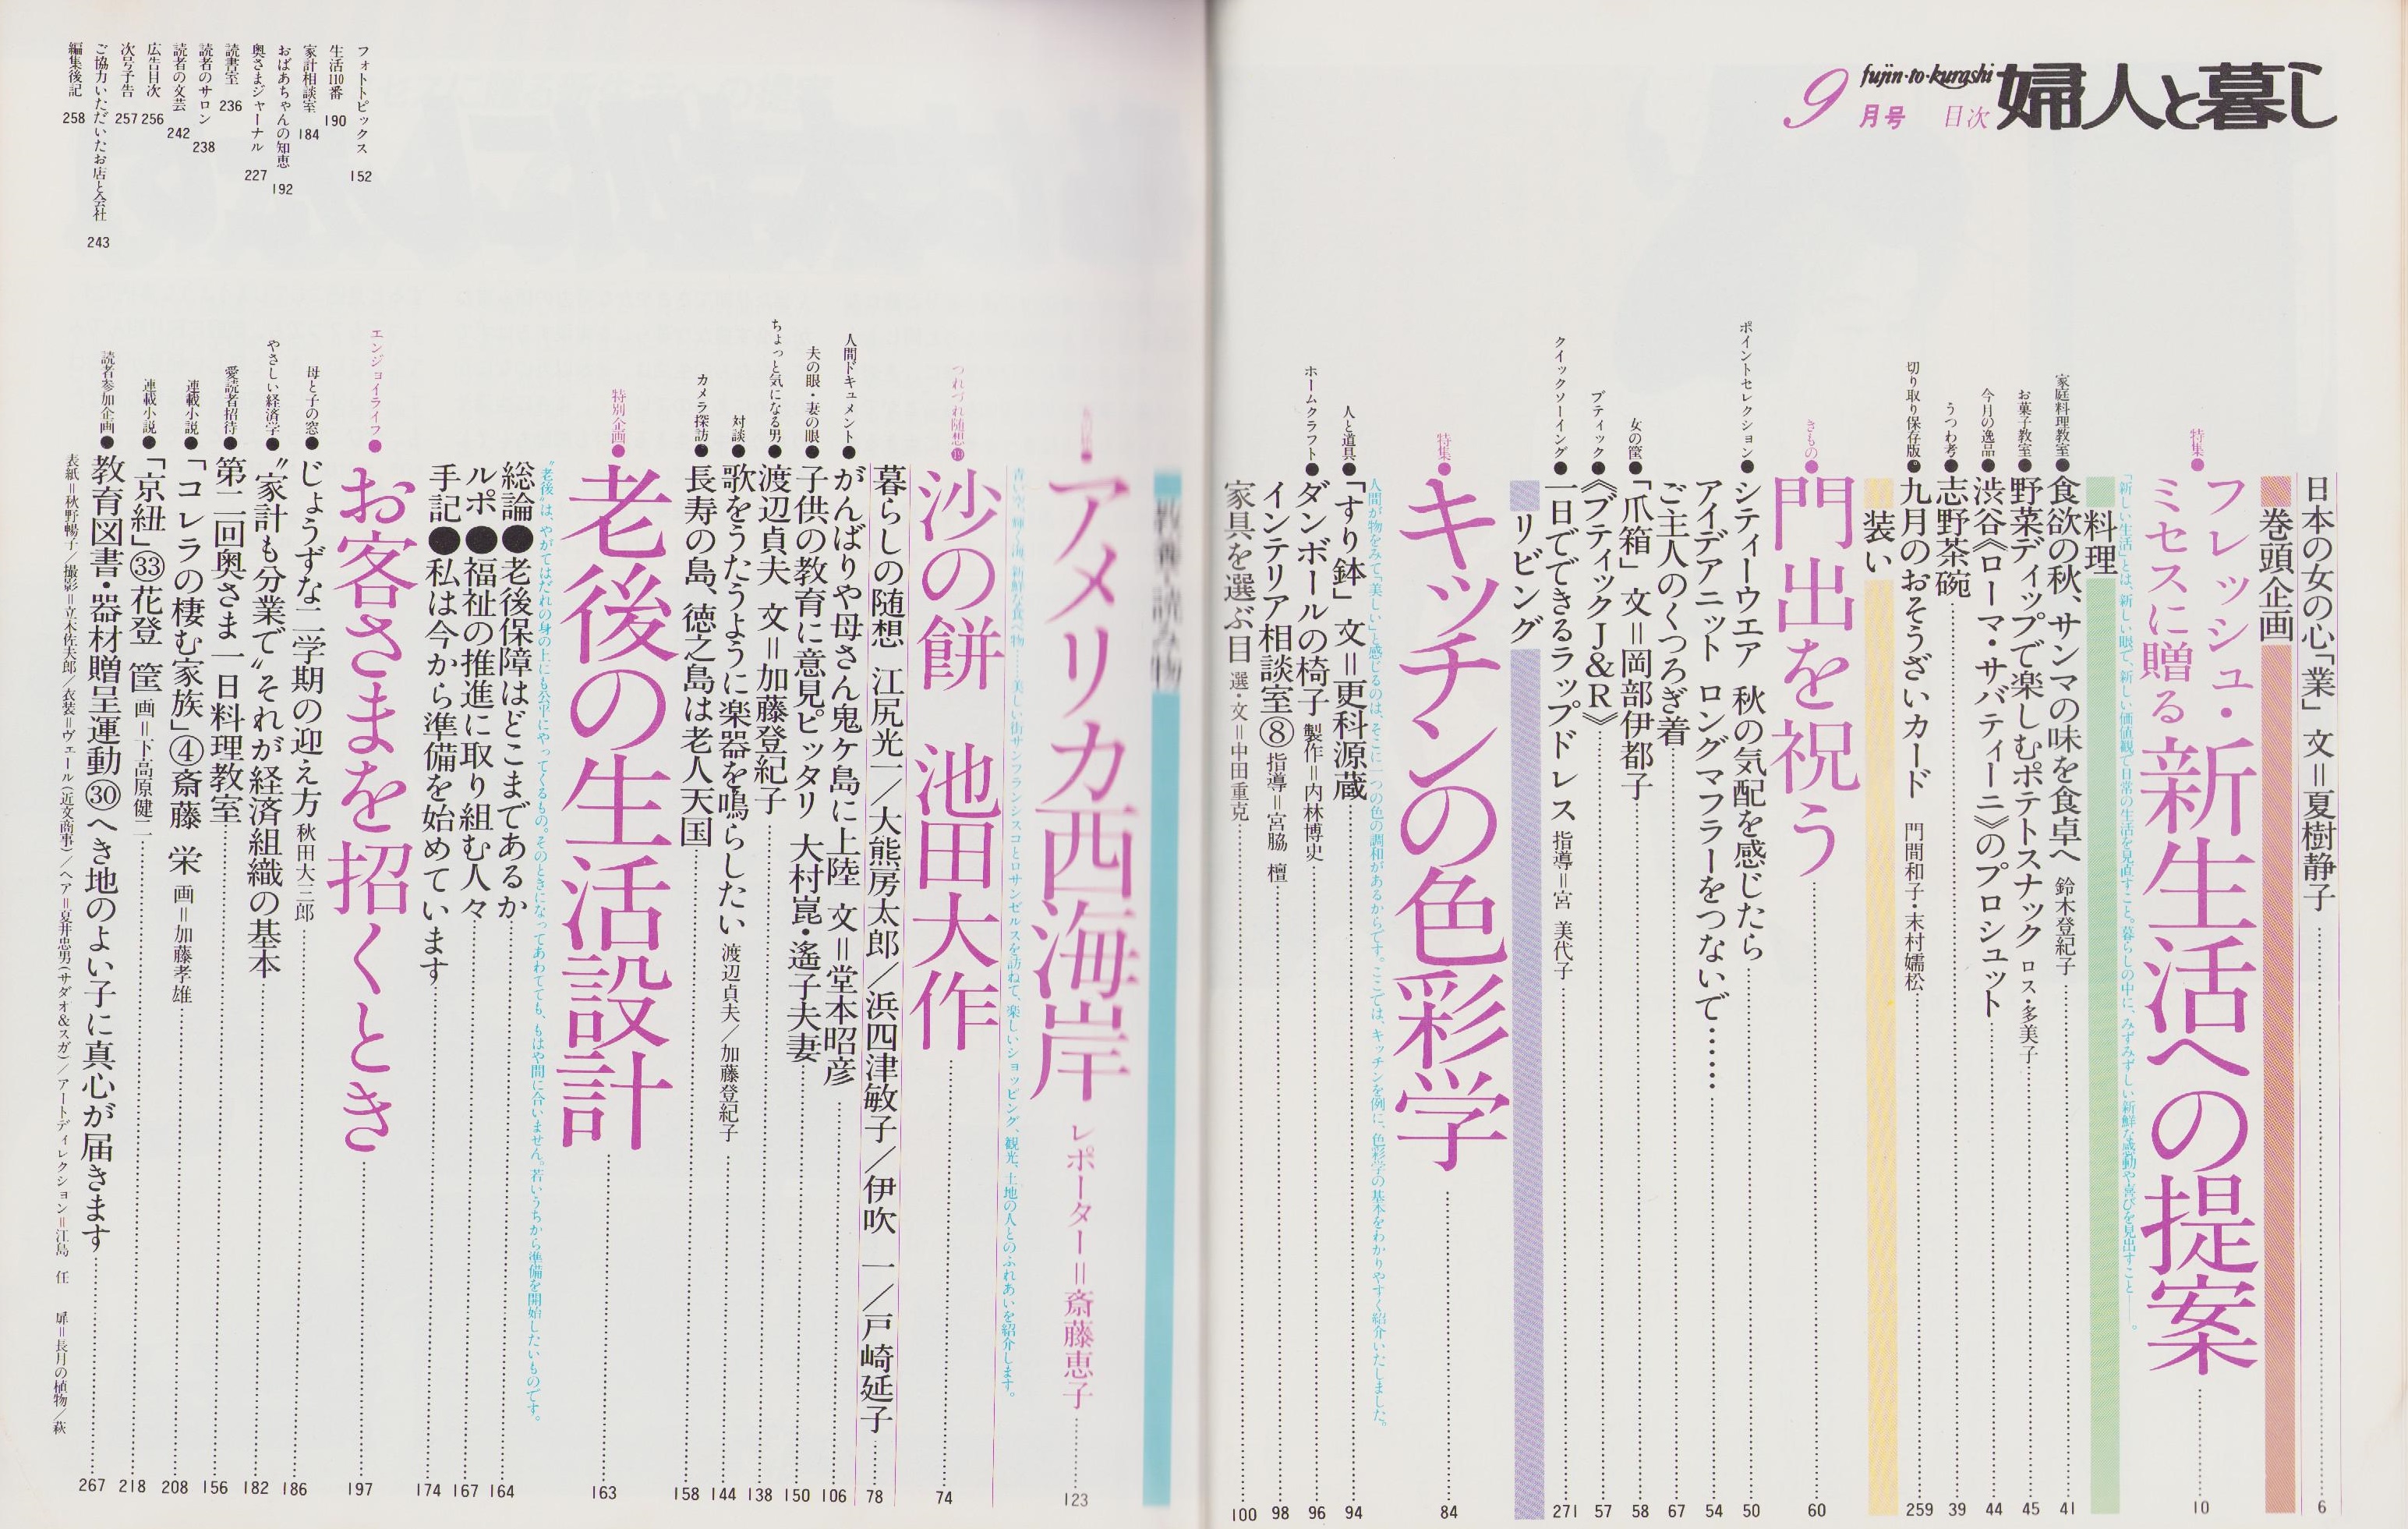 婦人と暮し
fujin-to-kurashi
9月号 目次
日本の女の心「業」 文＝夏樹静子 6
巻頭企画
特集●フレッシュ・ミセスに贈る
新生活への提案 10
「新しい生活」とは、新しい眼で、新しい価値観で日常の生活を見直すこと。暮らしの中に、みずみずしい新鮮な感動や喜びを見出すこと――。
料理
家庭料理教室●食欲の秋、サンマの味を食卓へ 鈴木登紀子 41
お菓子教室●野菜ディップで楽しむポテトスナック ロス・多美子 45
今月の逸品●渋谷《ローマ・サバティーニ》のプロシュット 44
うつわ考●志野茶碗 39
切り取り保存版●九月のおそうざいカード 門間和子・末村嬬松 259
装い
きもの●門出を祝う 60
ポイントセレクション●シティーウエア 秋の気配を感じたら 50
アイデアニット ロングマフラーをつないで…… 54
ご主人のくつろぎ着 67
女の筐●「爪箱」 文＝岡部伊都子 58
ブティック●《ブティックJ＆R》 57
クイックソーイング●一日でできるラップドレス 指導＝宮 美代子 271
リビング
特集●キッチンの色彩学 84
人間が物をみて「美しい」と感じるのは、そこに一つの色の調和があるからです。ここでは、キッチンを例に、色彩学の基本をわかりやすく紹介いたしました。
人と道具●「すり鉢」 文＝更科源蔵 94
ホームクラフト●ダンボールの椅子 製作＝内林博史 96
インテリア相談室⑧ 指導＝宮脇 檀 98
家具を選ぶ目 選・文＝中田重克 100
教養・読み物
●アメリカ西海岸 レポーター＝斎藤恵子 123
青い空、輝く海、新鮮な食べ物……美しい街サンフランシスコとロサンゼルスを訪ねて、楽しいショッピング、観光、土地の人とのふれあいを紹介します。
つれづれ随想⑲
沙の餅 池田大作 74
暮らしの随想 江尻光一／大熊房太郎／浜四津敏子／伊吹 一／戸崎延子 78
人間ドキュメント●がんばりや母さん鬼ケ島に上陸 文＝堂本昭彦 106
夫の眼・妻の眼●子供の教育に意見ピッタリ 大村崑・遙子夫妻 150
ちょっと気になる男●渡辺貞夫 文＝加藤登紀子 138
対談●歌をうたうように楽器を鳴らしたい 渡辺貞夫／加藤登紀子 144
カメラ探訪●長寿の島、徳之島は老人天国 158
特別企画●老後の生活設計 163
〝老後〟は、やがてはだれの身の上にも公平にやってくるもの。そのときになってあわてても、もはや間に合いません。若いうちから準備を開始したいものです。
総論●老後保障はどこまであるか 164
ルポ●福祉の推進に取り組む人々 167
手記●私は今から準備を始めています 174
エンジョイライフ●お客さまを招くとき 197
母と子の窓●じょうずな二学期の迎え方 秋田大三郎 186
やさしい経済学●〝家計も分業で〟それが経済組織の基本 182
愛読者招待●第二回奥さま一日料理教室 156
連載小説●「コレラの棲む家族」④斎藤 栄 画＝加藤孝雄 208
連載小説●「京紐」㉝花登 筐 画＝下高原健二 218
読者参加企画●教育図書・器材贈呈運動㉚へき地のよい子に真心が届きます 267
表紙＝秋野暢子／撮影＝立木佐夫郎／衣装＝ヴェール（近文商事）／ヘア＝夏井忠男（サダオ＆スガ）／アートディレクション＝江島 任 扉＝長月の植物／萩
フォトトピックス 152
生活110番 190
家計相談室 184
おばあちゃんの知恵 192
奥さまジャーナル 227
読書室 236
読者のサロン 238
読者の文芸 242
広告目次 256
次号予告 257
ご協力いただいたお店と会社 243
編集後記 258